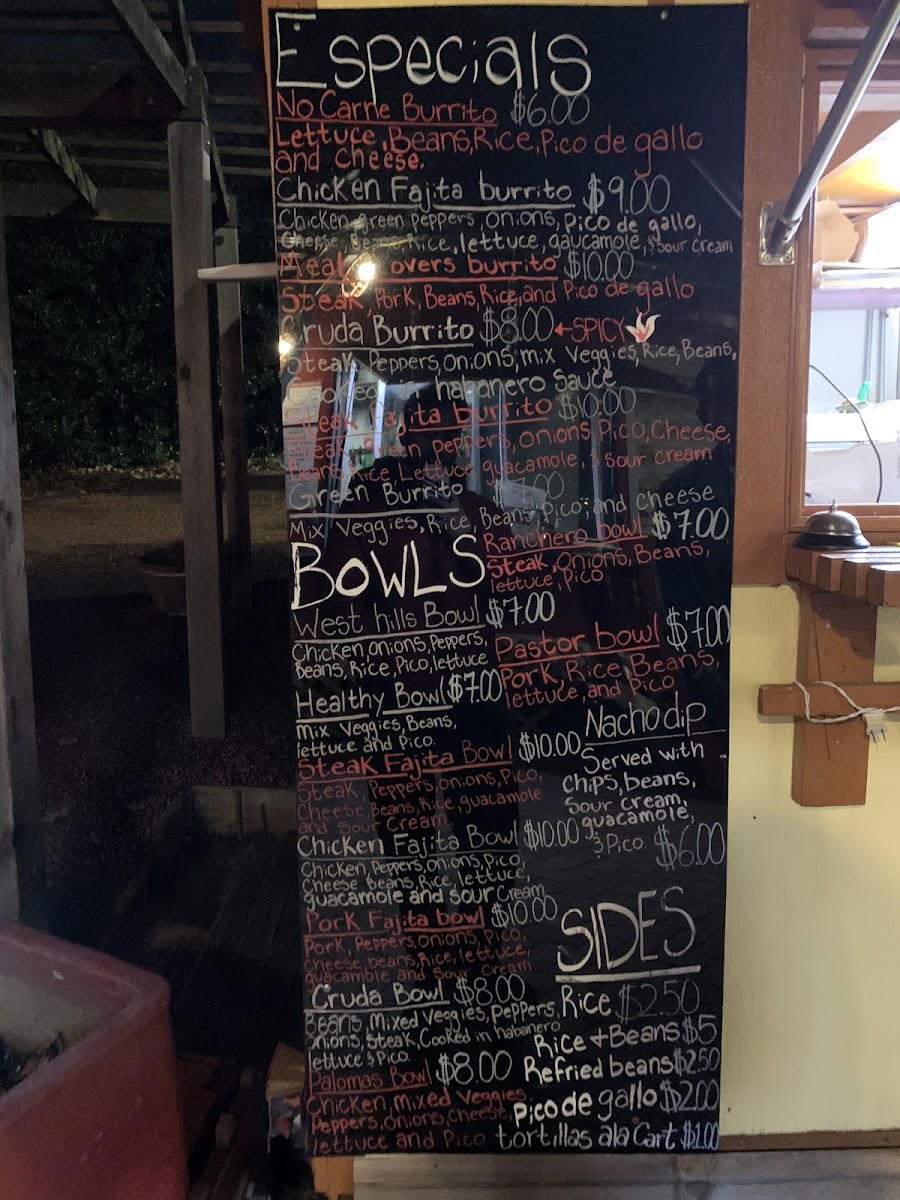 Especials
No Carne Burrito $6.00
Lettuce, Beans, Rice, Pico de gallo
and cheese.
Chicken Fajita burrito $9.00
Chicken, green peppers, onions, pico de gallo,
Cheese, Beans, Rice, lettuce, gaucamole, & sour cream
Meat Lovers burrito $10.00
Steak, Pork, Beans, Rice, and Pico de gallo
Cruda Burrito $8.00 ←SPICY
Steak, Peppers, onions, mix Veggies, Rice, Beans,
Cooked in habanero Sauce
Steak Fajita burrito $10.00
Steak, green peppers, onions, Pico, Cheese,
Beans, Rice, Lettuce, guacamole, & sour cream
Green Burrito $7.00
Mix Veggies, Rice, Beans, Pico, and cheese
BOWLS
West hills Bowl $7.00
Chicken, onions, Peppers,
Beans, Rice, Pico, lettuce
Healthy Bowl $7.00
Mix Veggies, Beans,
lettuce and Pico.
Steak Fajita Bowl $10.00
Steak, Peppers, onions, Pico,
Cheese, Beans, Rice, guacamole
and Sour Cream
Chicken Fajita Bowl $10.00
Chicken, Peppers, onions, Pico,
Cheese Beans, Rice, lettuce,
guacamole and sour Cream
Pork Fajita bowl $10.00
Pork, Peppers, onions, Pico
Cheese, beans, Rice, lettuce,
guacamole and Sour Cream
Cruda Bowl $8.00
Beans, Mixed Veggies, Peppers,
onions, Steak, Cooked in habanero
lettuce & Pico
Palomas Bowl $8.00
Chicken, Mixed Veggies
Peppers, onions, cheese,
lettuce and Pico
Ranchero bowl $7.00
Steak, Onions, Beans,
lettuce, Pico
Pastor bowl $7.00
Pork, Rice, Beans,
lettuce, and Pico
Nacho dip
Served with
Chips, beans,
Sour Cream,
guacamole,
& Pico $6.00
SIDES
Rice $2.50
Rice + Beans $5
Refried beans $2.50
Pico de gallo $2.00
tortillas ala Cart $1.00